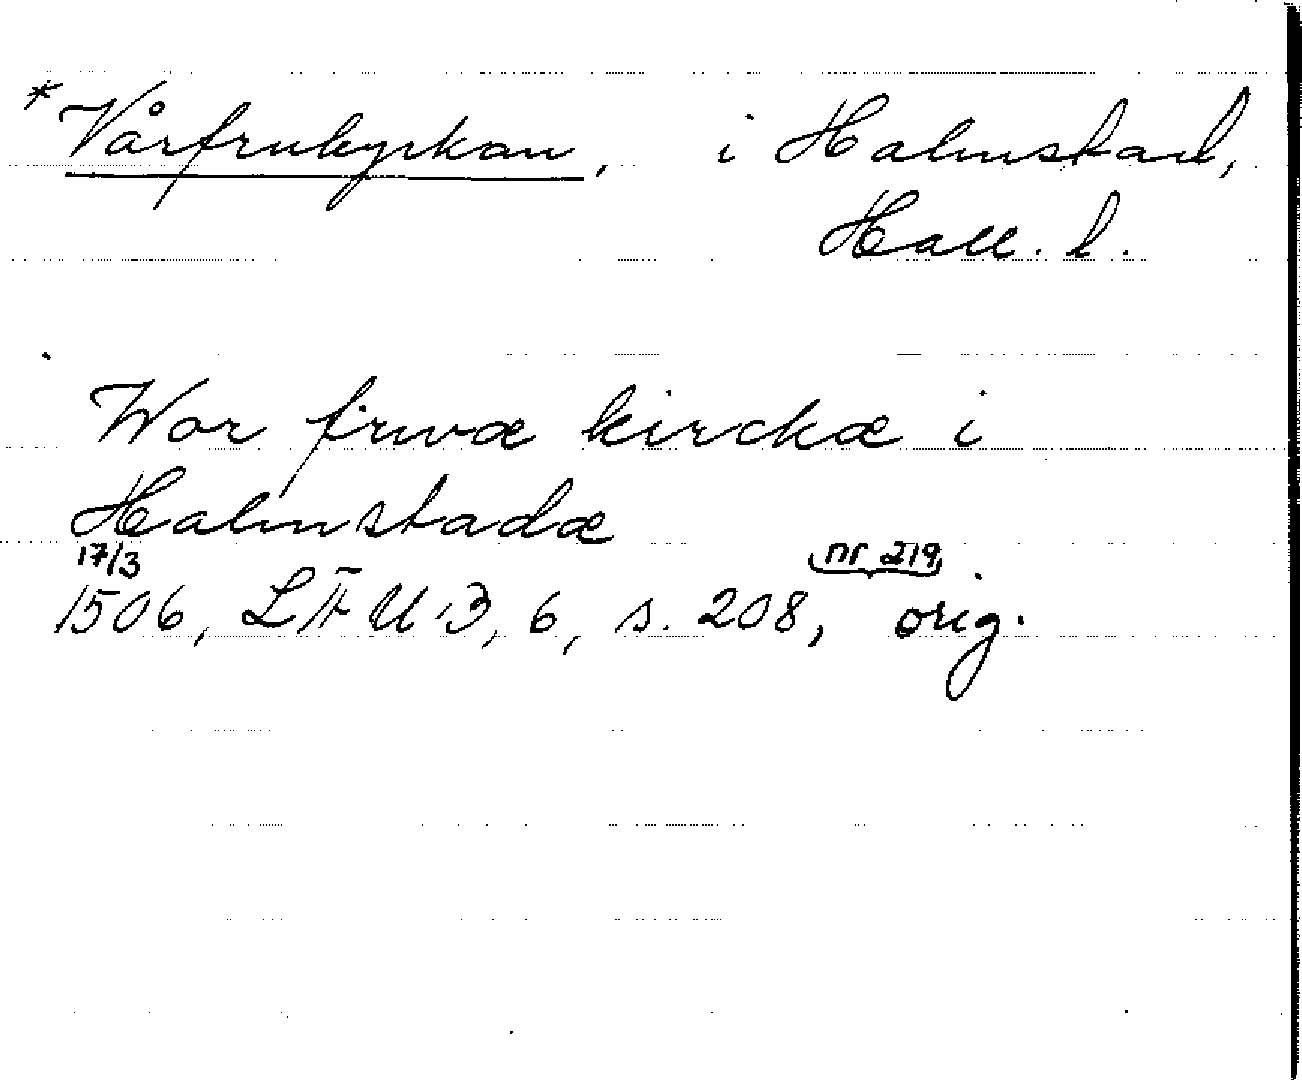 *Vårfrukyrkan, i Halmstad,
Hall. l.
Wor frwæ kirckæ i
Halmstadæ
17/3 nr 219
1506, LFU 3, 6, s. 208, orig.